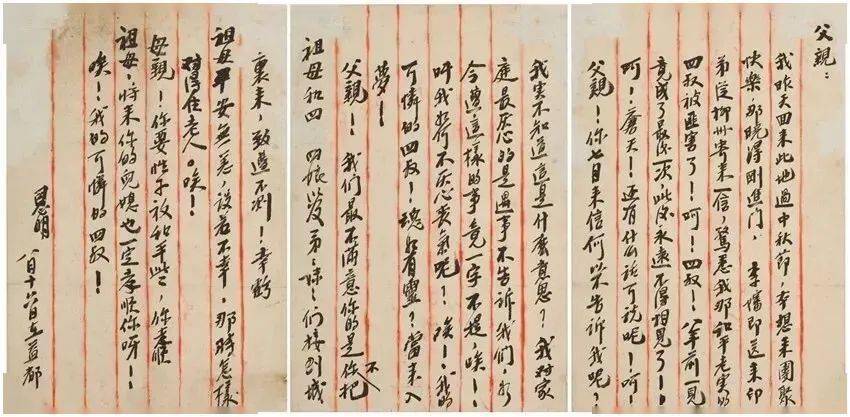 父親：
我昨天回来此地過中秋節，本想来團聚
快樂，那曉得剛進門，李嬸即送来印
弟從柳州寄来一信，驚悉我那和平老实的
四叔被匪害了！呵！四叔！八年前一見
竟成了最後一次，此後永遠不得相見了！！
呵！蒼天！还有什么話可说呢！呵！
父親！你七月来信何以不告訴我呢？
我实不知道這是什麽意思？我对家
庭最灰心的是遇事不告訴我们，如
今遭這樣的事竟一字不提，唉！
叫我如何不灰心丧氣呢！唉！我的
可憐的四叔！魂如有靈？當来入
夢！
父親！我们最不滿意你的是你不把
祖母和四 四娘以及弟弟妹妹们接到城
裏来，致遭不測！幸虧
祖母平安無恙，設若不幸，那時怎樣
對得住老人。唉！
母親！你要性子放和平些，你孝順
祖母，将来你的兒媳也一定孝順你呀！
唉！我的可憐的四叔！
八月十六日在益都